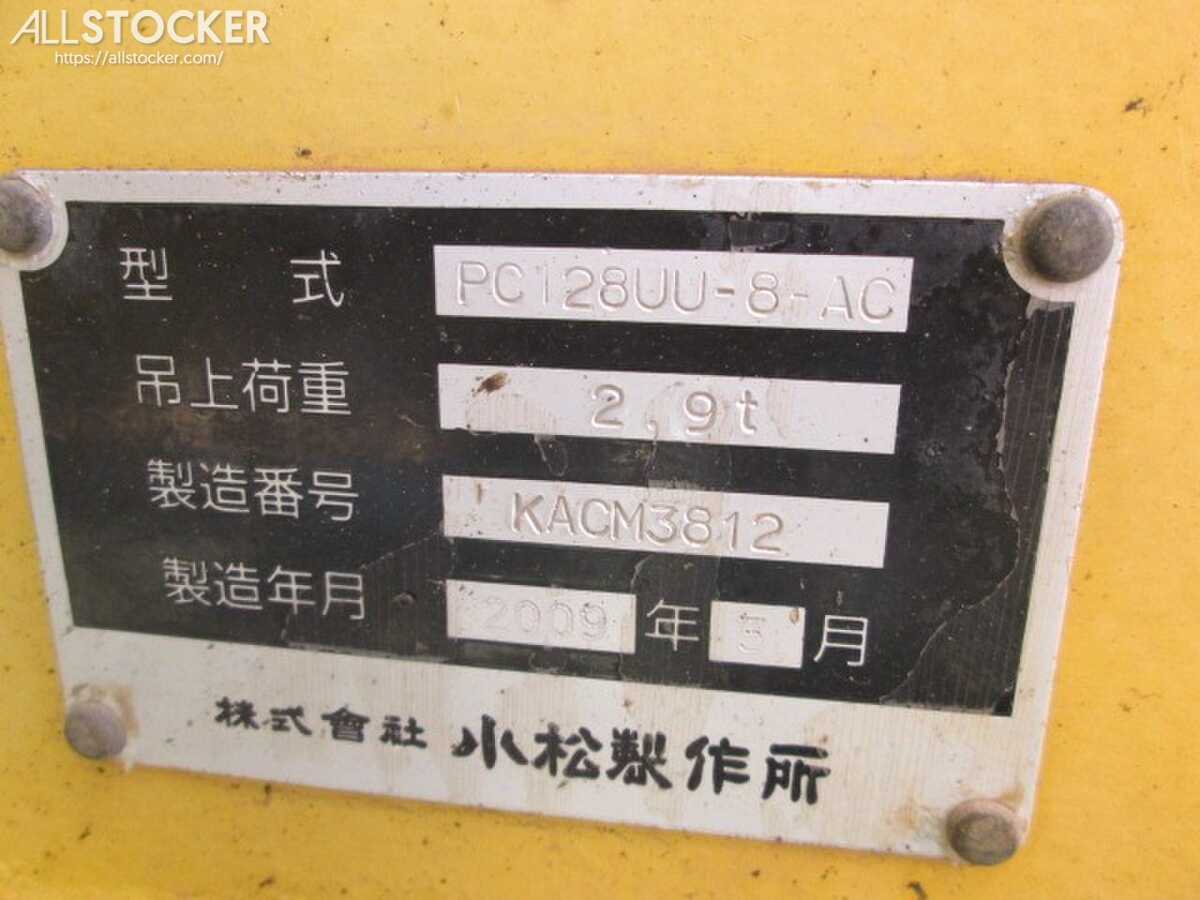 ALLSTOCKER
https://allstocker.com/
型 式 PC128UU-8-AC
吊上荷重 2,9t
製造番号 KACM3812
製造年月 2009 年 3 月
株式會社 小松製作所